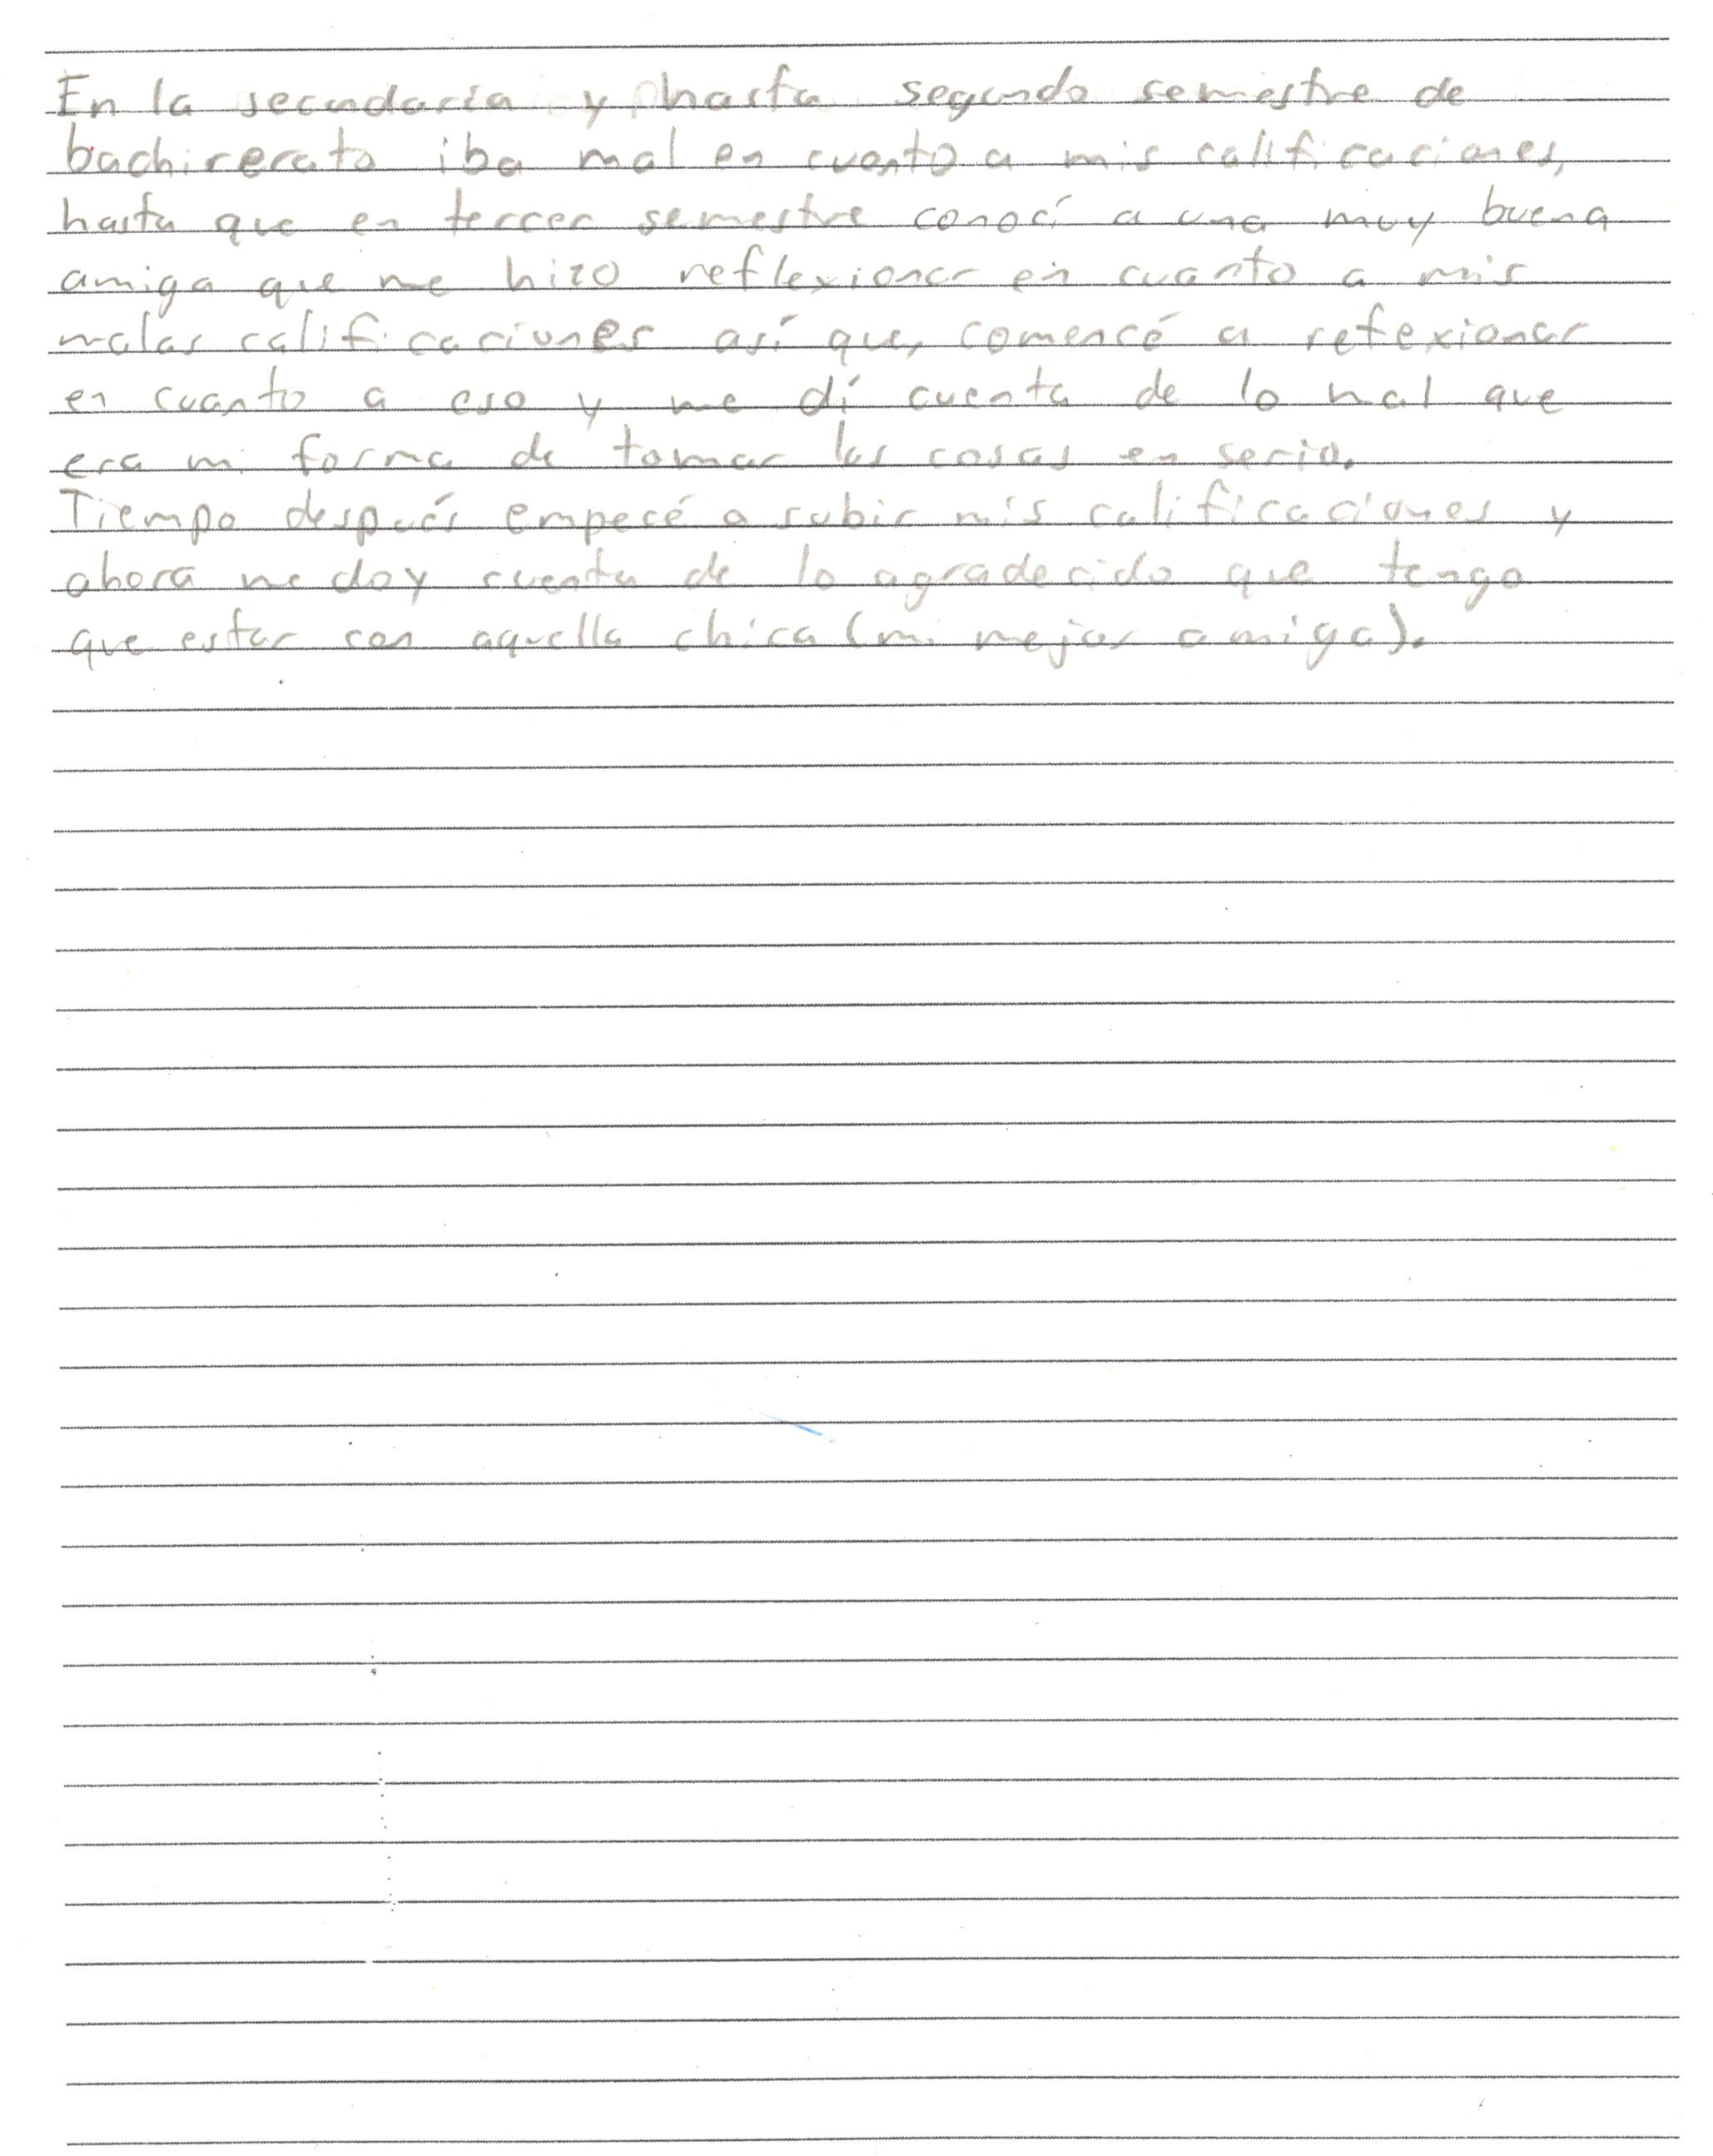 En la secundaria y hasta segundo semestre de
bachirerato iba mal en cuanto a mis calificaciones,
hasta que en tercer semestre conocí a una muy buena
amiga que me hizo reflexionar en cuanto a mis
malas calificaciones así que, comencé a refexionar
en cuanto a eso y me dí cuenta de lo mal que
era mi forma de tomar las cosas en serio.
Tiempo después empecé a subir mis calificaciones y
ahora me doy cuenta de lo agradecido que tengo
que estar con aquella chica (mi mejor amiga).